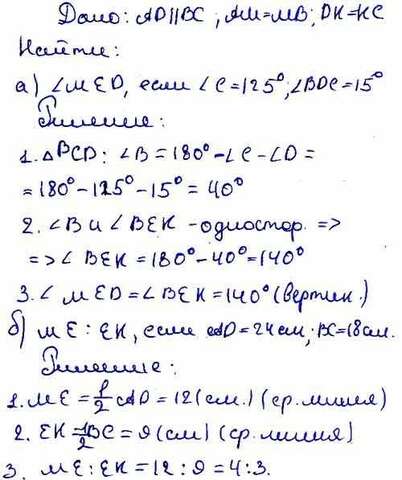 Дано: AD||BC; AM=MB; DK=KC
Найти:
а) ∠MED, если ∠C=125°; ∠BDC=15°
Решение:
1. △BCD: ∠B=180°-∠C-∠D=
=180°-125°-15°=40°
2. ∠B и ∠BEK -одностор. =>
=>∠BEK=180°-40°=140°
3. ∠MED=∠BEK=140° (вертик.)
б) ME:EK, если AD=24см; BC=18см.
Решение:
1. ME=1/2AD=12(см.) (ср. линия)
2. EK=1/2BC=9(см) (ср. линия)
3. ME:EK=12:9=4:3.